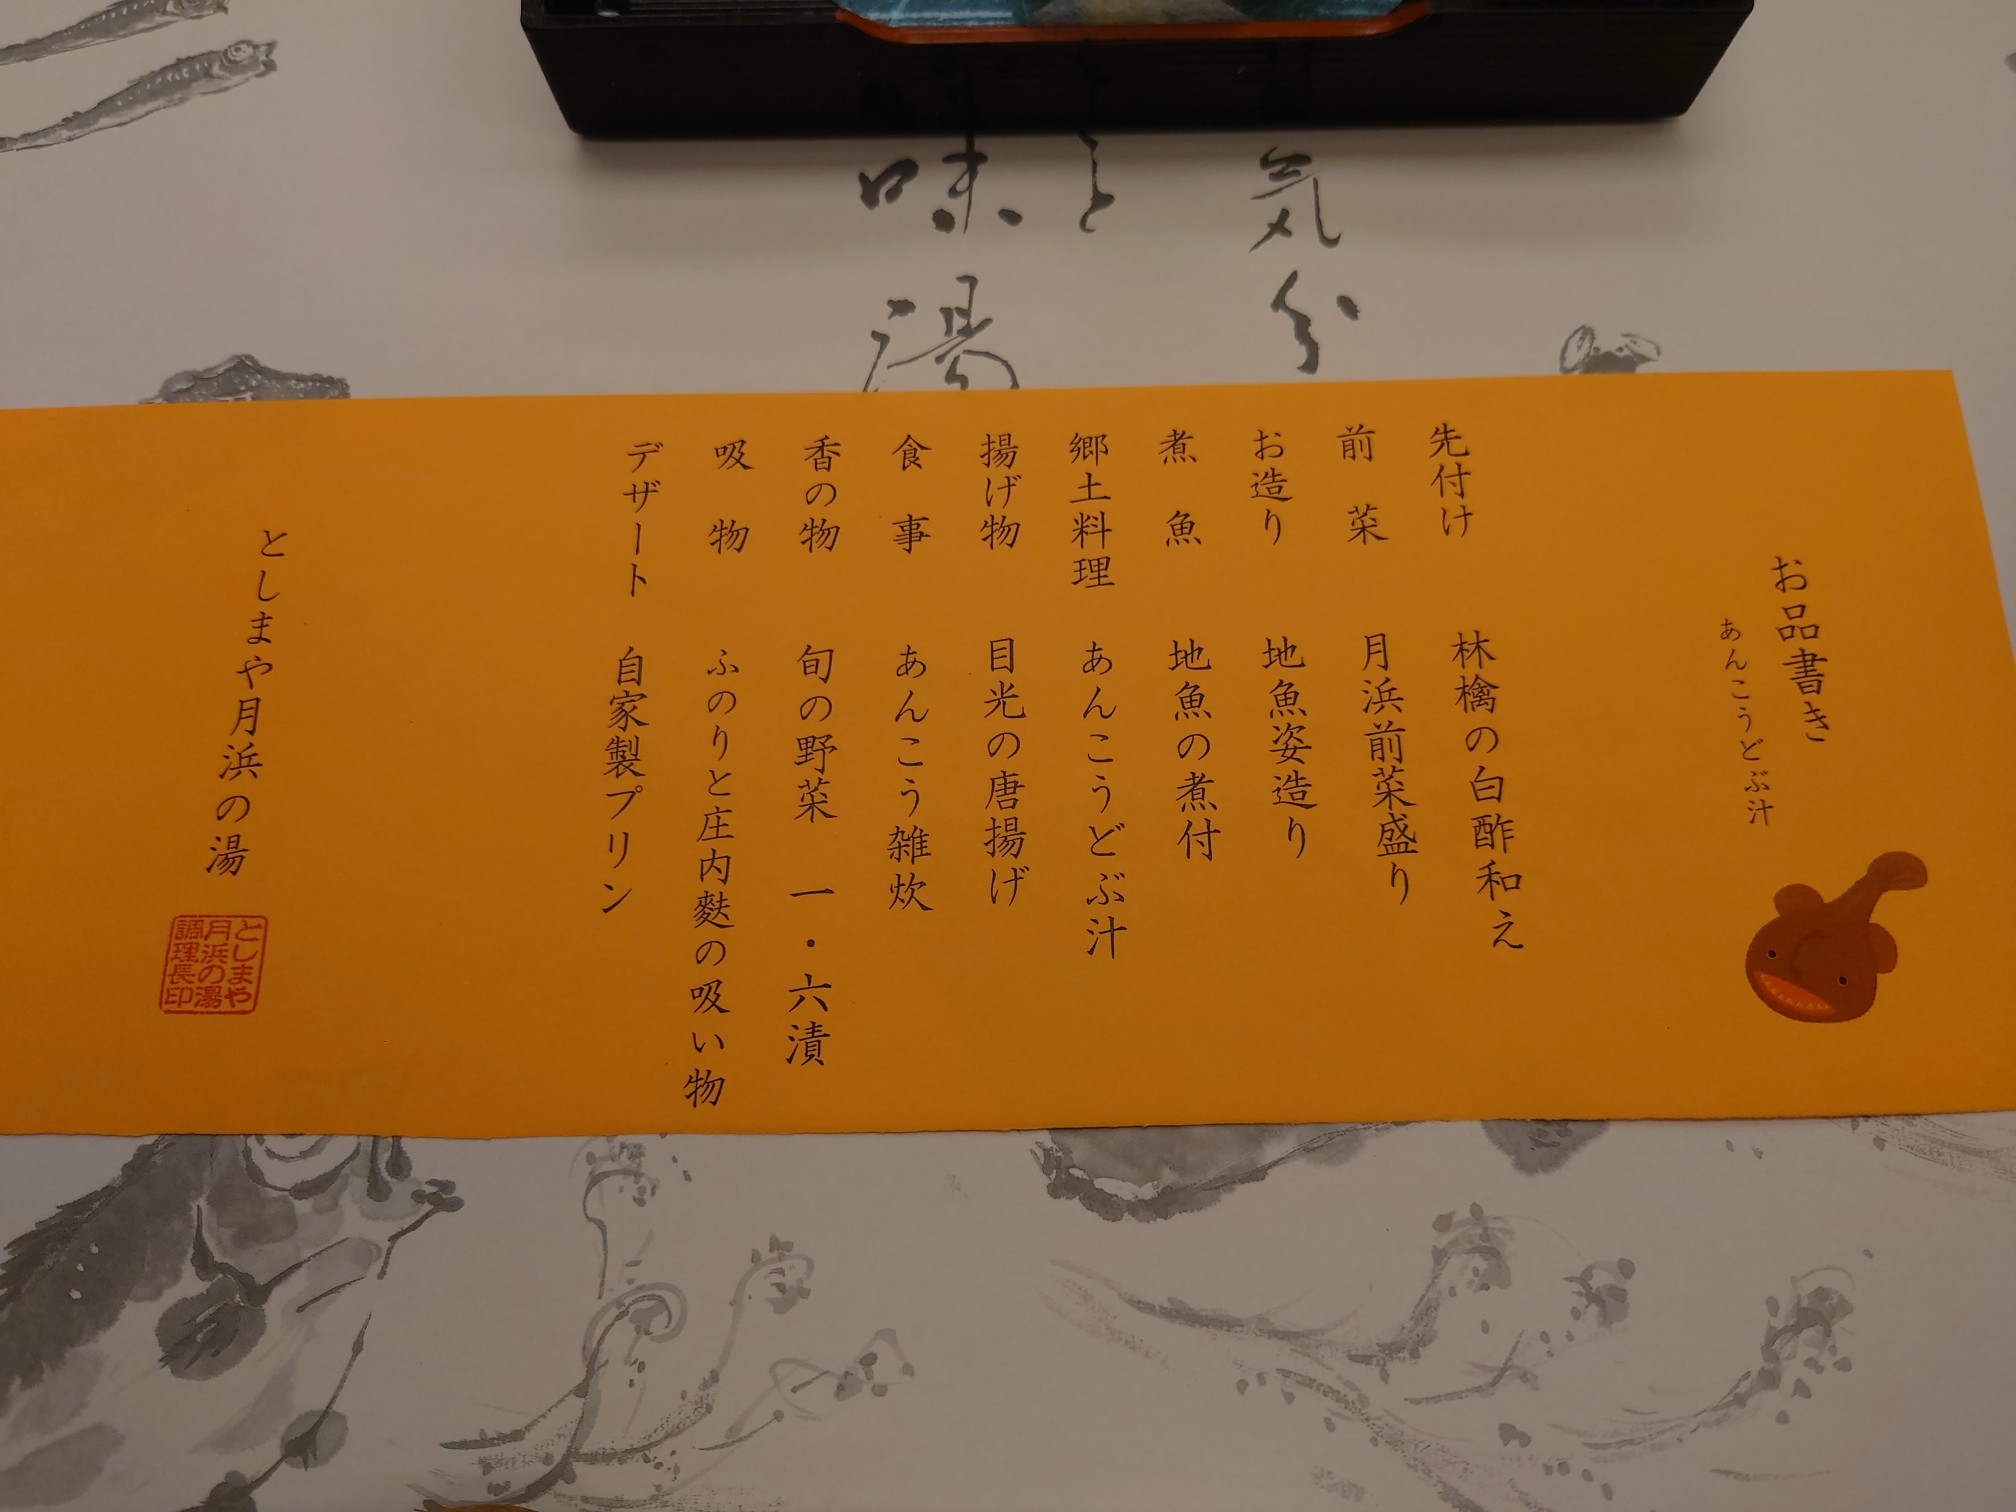 お品書き
あんこうどぶ汁
先付け　林檎の白酢和え
前菜　月浜前菜盛り
お造り　地魚姿造り
煮魚　地魚の煮付
郷土料理　あんこうどぶ汁
揚げ物　目光の唐揚げ
食事　あんこう雑炊
香の物　旬の野菜　一・六漬
吸物　ふのりと庄内麩の吸い物
デザート　自家製プリン
としまや月浜の湯
としまや
月浜の湯
調理長印
気分
と
味湯